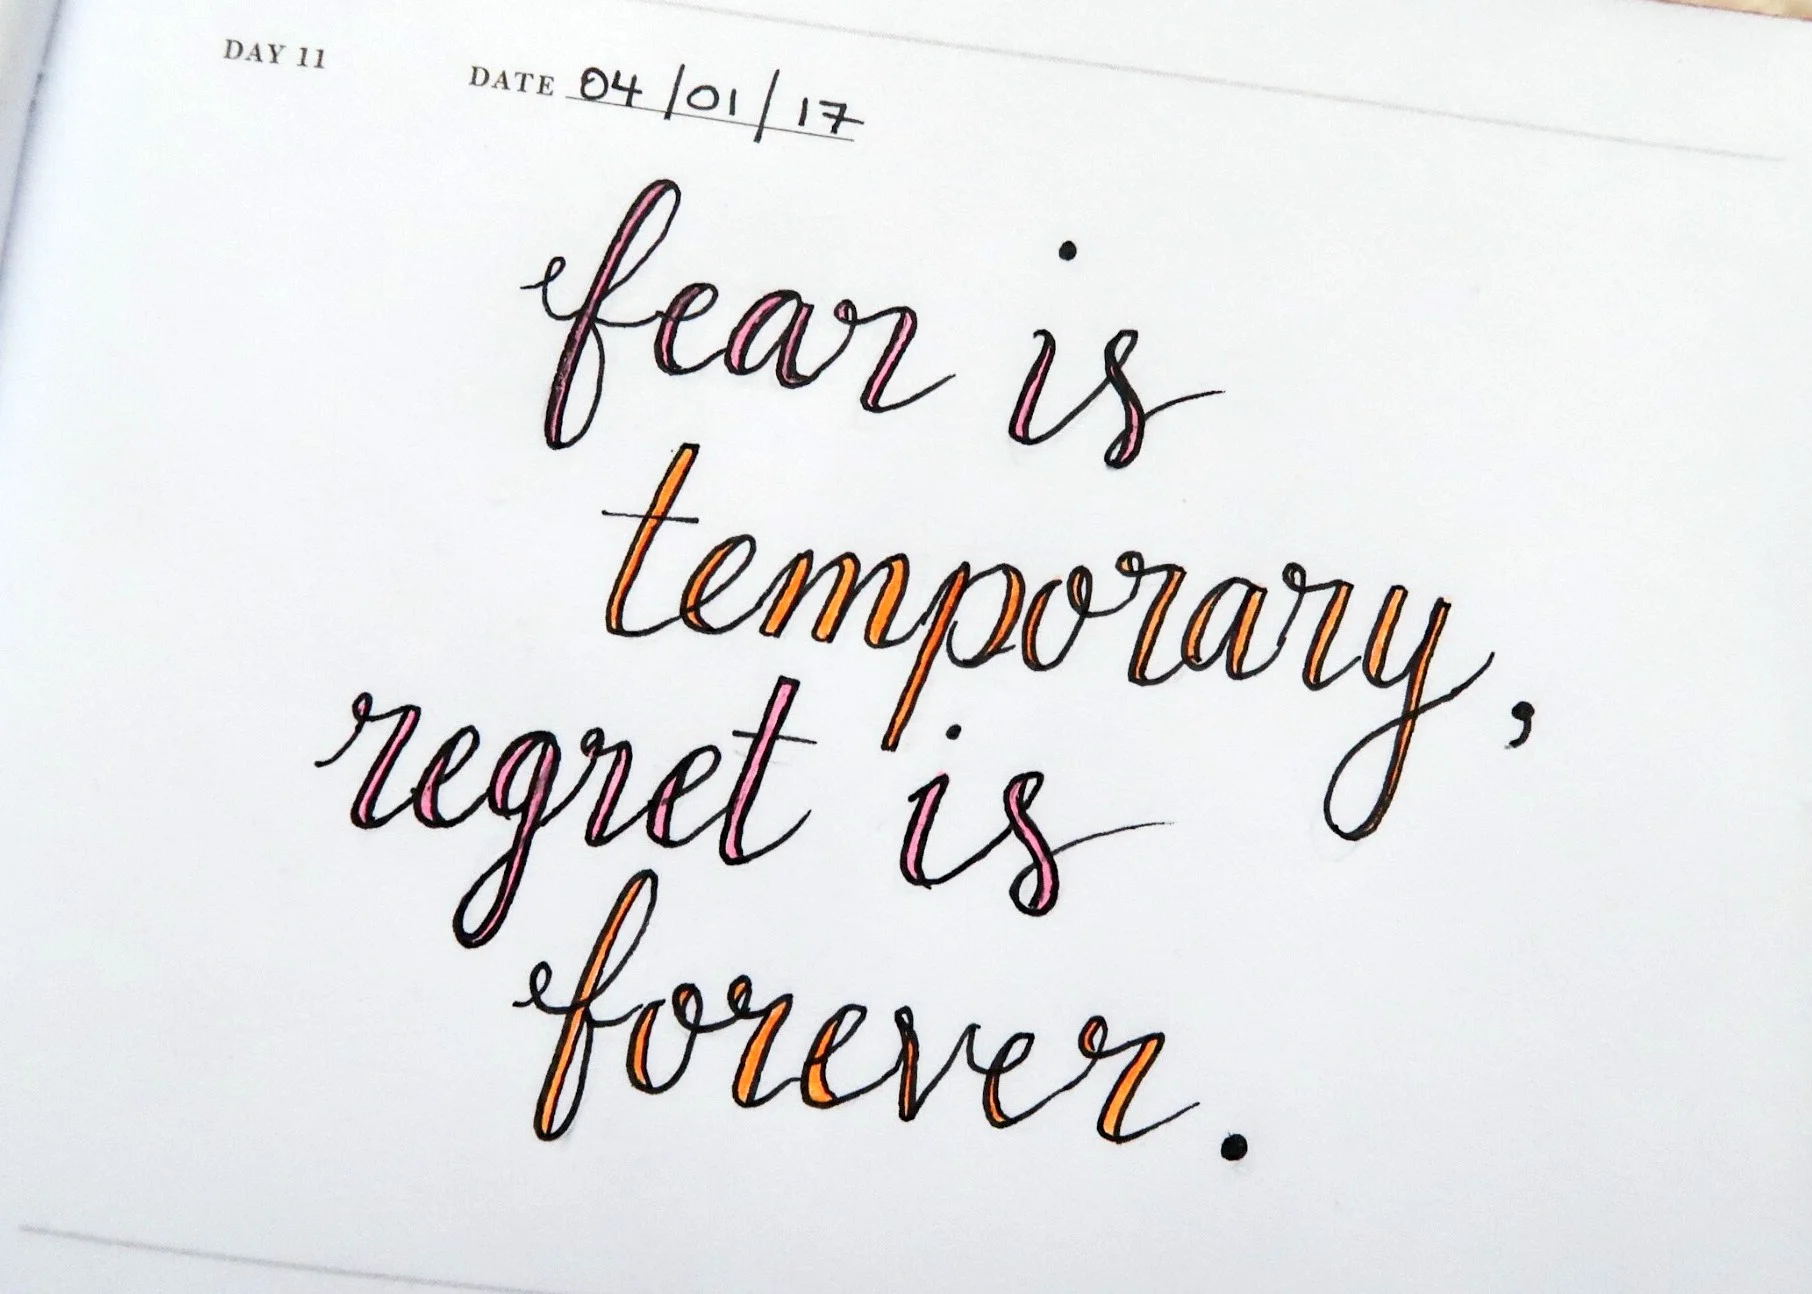 DAY 11 DATE 04/01/17
fear is
temporary,
regret is
forever.